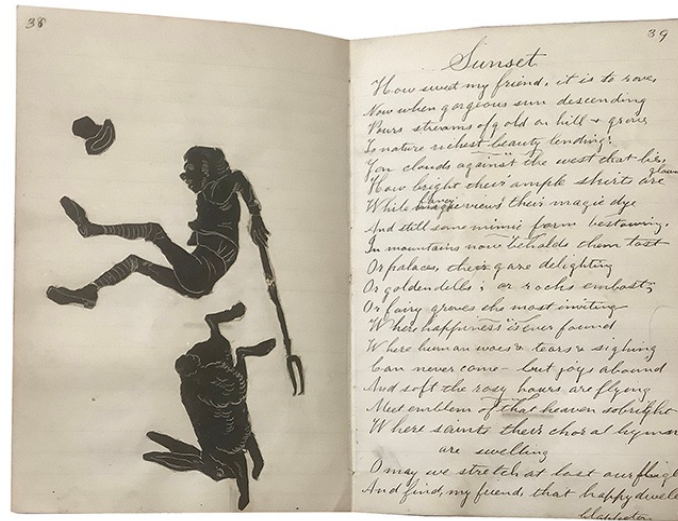 38
39
Sunset
How sweet my friend, it is to rove,
Now when gorgeous sun descending
Pours streams of gold on hill + grove
To nature richest beauty lending:
Yon clouds against the west that lie,
How bright their ample skirts are glowing
While fancy views their magic dye
And still some mimic form bestowing.
In mountains now beholds them tost
Or palaces their gaze delighting
Or golden dells; or rocks embost;
Or fairy groves the most inviting
Where happiness is ever found
Where human woes & tears & sighing
Can never come - but joys abound
And soft the rosy hours are flying
Meet emblem of that heaven so bright
Where saints their choral hymns
are swelling
O may we stretch at last our flight
And find, my friend, that happy